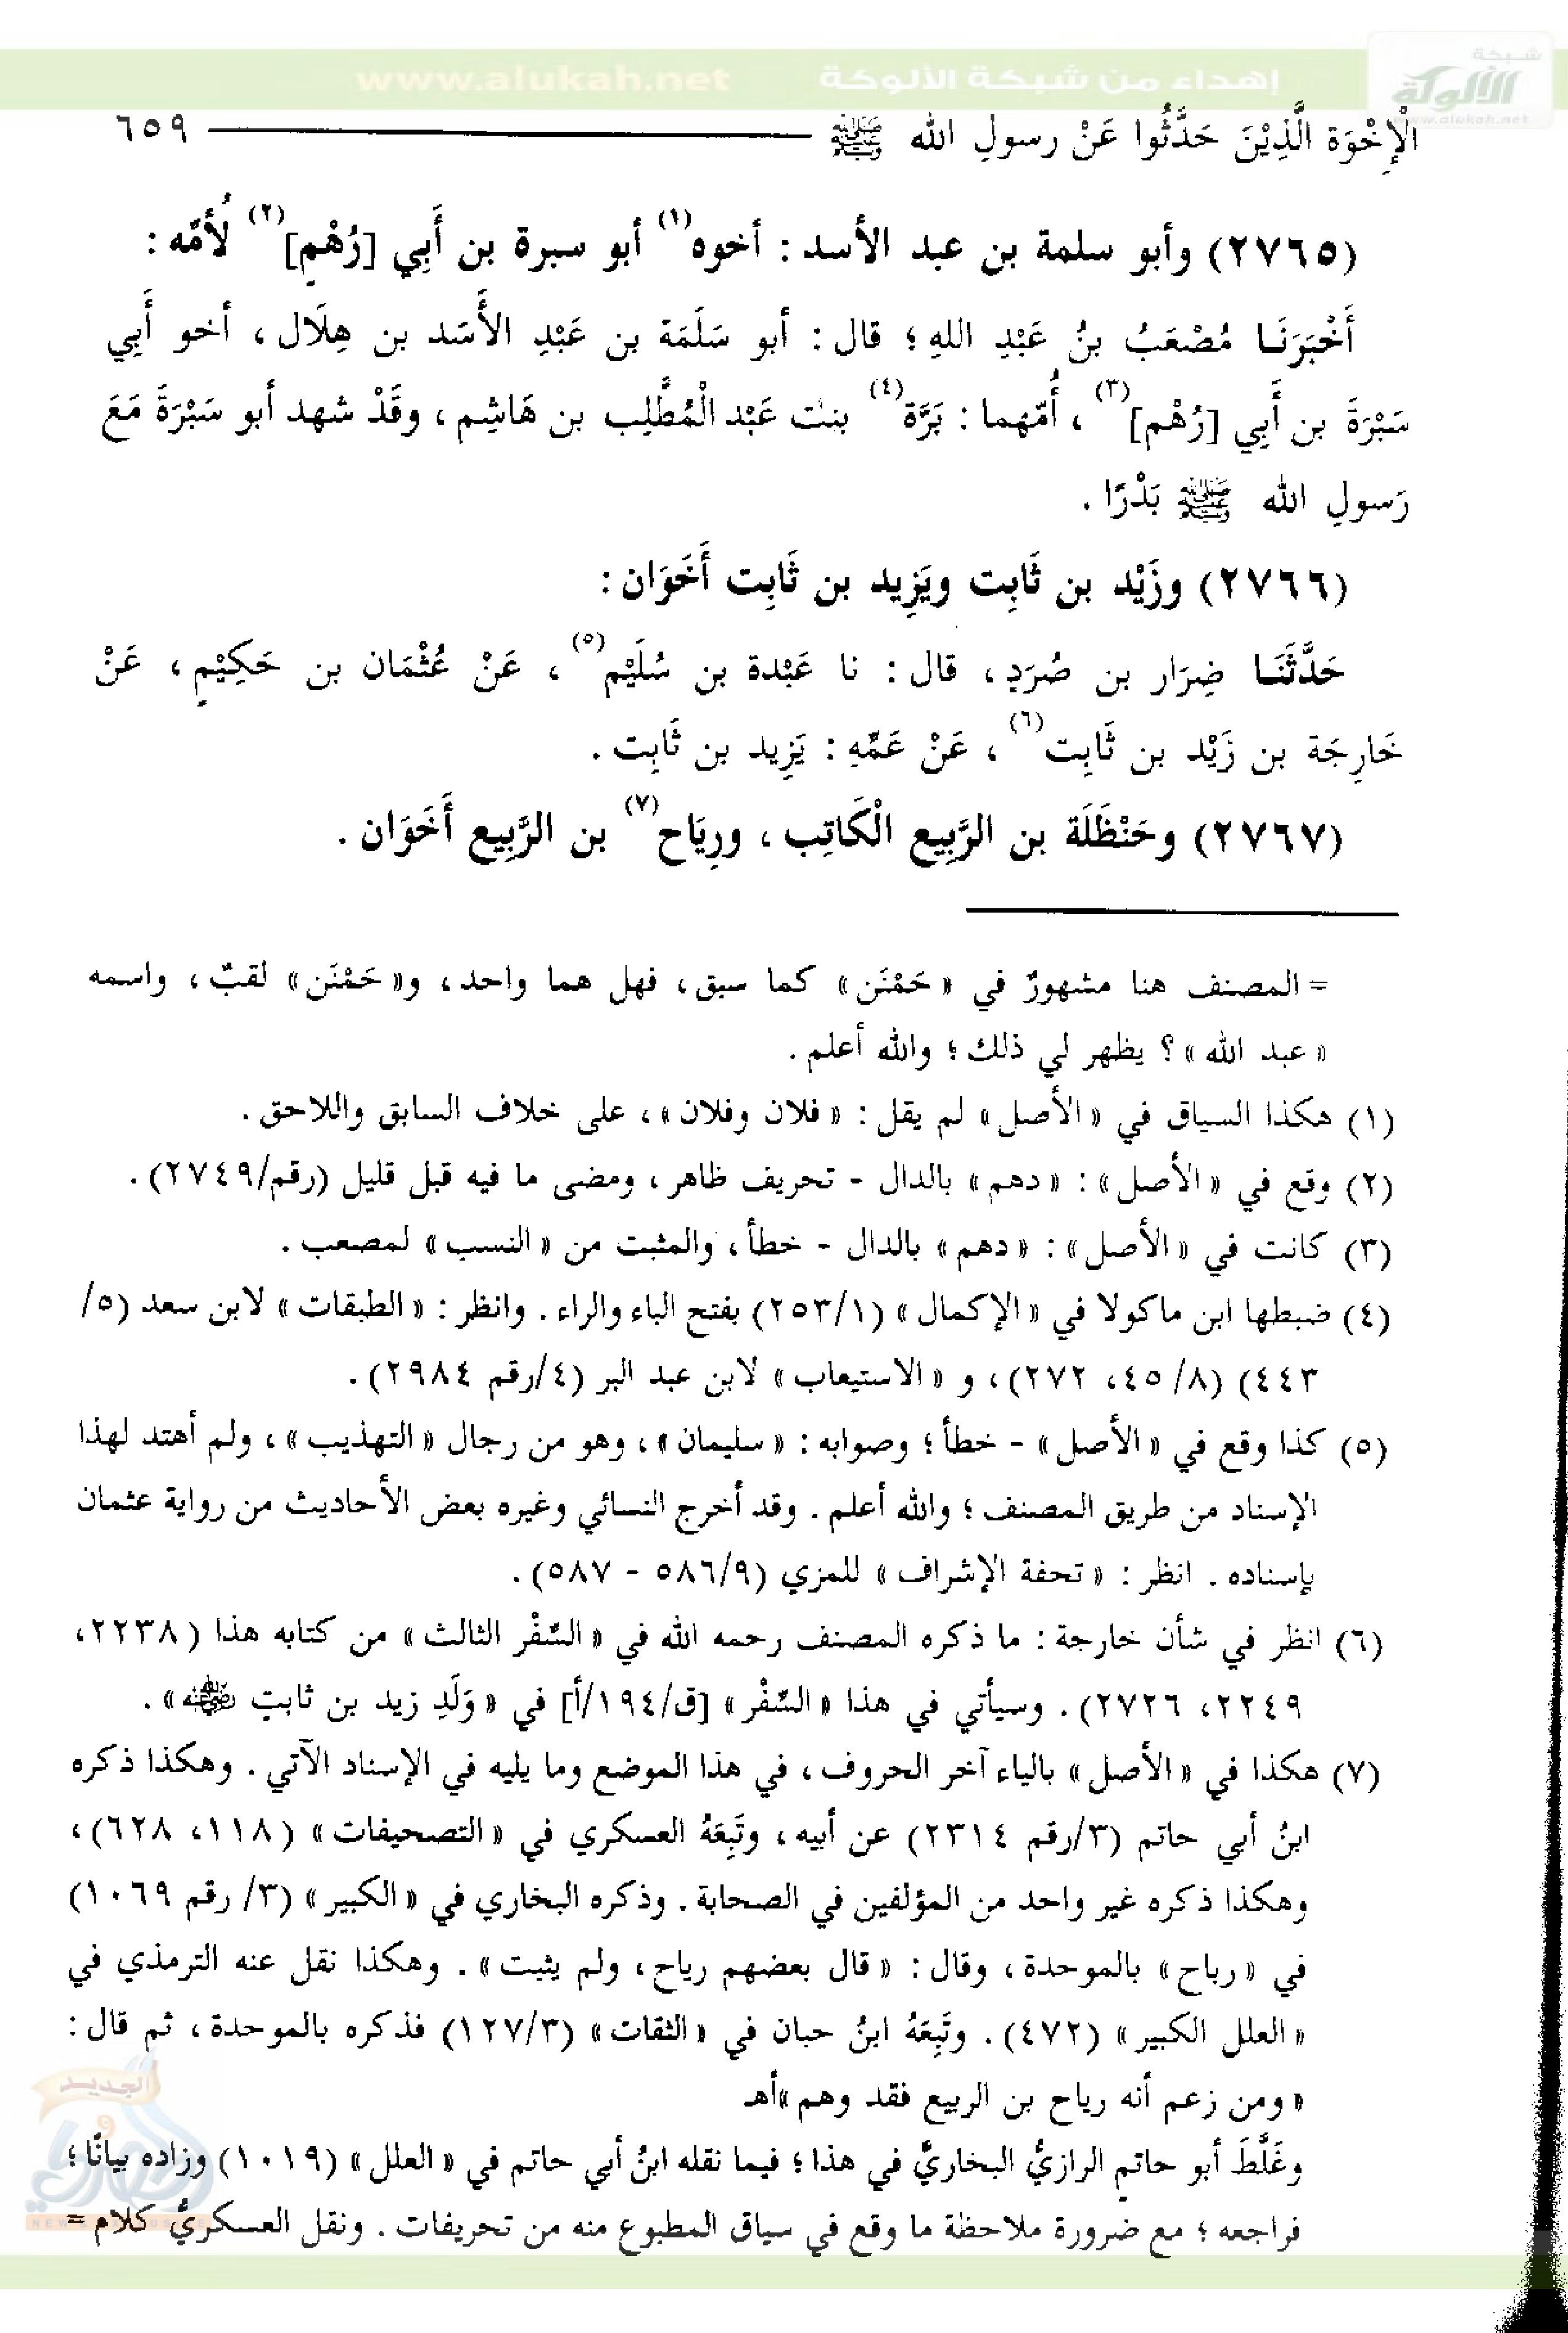 شبكة
الألوكة
www.alukah.net
إهداء من شبكة الألوكة
www.alukah.net
الْإِخْوَة الَّذِيْنَ حَدَّثُوا عَنْ رسولِ الله ﷺ ٦٥٩
(٢٧٦٥) وأبو سلمة بن عبد الأسد : أخوه(١) أبو سبرة بن أَبِي [رُهْمٍ](٢) لُأمّه :
أَخْبَرَنَا مُصْعَبُ بنُ عَبْدِ اللهِ ؛ قال : أبو سَلَمَة بن عَبْدِ الأَسَد بن هِلَال ، أخو أَبِي
سَبْرَةَ بن أَبِي [رُهْم](٣) ، أُمّهما : بَرَّة(٤) بنت عَبْد الْمُطَّلِب بن هَاشِم ، وقَدْ شهد أبو سَبْرَةَ مَعَ
رَسولِ الله ﷺ بَدْرًا .
(٢٧٦٦) وزَيْد بن ثَابِت ويَزِيد بن ثَابِت أَخَوَان :
حَدَّثَنَا ضِرَار بن صُرَدِ ، قال : نا عَبْدة بن سُلَيْم(٥) ، عَنْ عُثْمَان بن حَكِيْمٍ ، عَنْ
خَارِجَة بن زَيْد بن ثَابِت(٦) ، عَنْ عَمِّهِ : يَزِيد بن ثَابِت .
(٢٧٦٧) وحَنْظَلَة بن الرَّبِيع الْكَاتِب ، ورِيَاح(٧) بن الرَّبِيع أَخَوَان .
= المصنف هنا مشهورٌ في « حَمْنَن » كما سبق ، فهل هما واحد ، و« حَمْنَن » لقبٌ ، واسمه
« عبد الله » ؟ يظهر لي ذلك ؛ والله أعلم .
(١) هكذا السياق في « الأصل » لم يقل : « فلان وفلان » ، على خلاف السابق واللاحق .
(٢) وقع في « الأصل » : « دهم » بالدال - تحريف ظاهر ، ومضى ما فيه قبل قليل (رقم/٢٧٤٩) .
(٣) كانت في « الأصل » : « دهم » بالدال - خطأ ، والمثبت من « النسب » لمصعب .
(٤) ضبطها ابن ماكولا في « الإكمال » (٢٥٣/١) بفتح الباء والراء . وانظر : « الطبقات » لابن سعد (٥/
٤٤٣) (٨/ ٤٥، ٢٧٢) ، و « الاستيعاب » لابن عبد البر (٤/رقم ٢٩٨٤) .
(٥) كذا وقع في « الأصل » - خطأ ؛ وصوابه : « سليمان » ، وهو من رجال « التهذيب » ، ولم أهتد لهذا
الإسناد من طريق المصنف ؛ والله أعلم . وقد أخرج النسائي وغيره بعض الأحاديث من رواية عثمان
بإسناده . انظر : « تحفة الإشراف » للمزي (٥٨٦/٩ - ٥٨٧) .
(٦) انظر في شأن خارجة : ما ذكره المصنف رحمه الله في « السِّفْر الثالث » من كتابه هذا (٢٢٣٨،
٢٢٤٩، ٢٧٢٦) . وسيأتي في هذا « السِّفْر » [ق/١٩٤/أ] في « وَلَدِ زيد بن ثابتٍ رضي الله عنه » .
(٧) هكذا في « الأصل » بالياء آخر الحروف ، في هذا الموضع وما يليه في الإسناد الآتي . وهكذا ذكره
ابنُ أبي حاتم (٣/رقم ٢٣١٤) عن أبيه ، وتَبِعَهُ العسكري في « التصحيفات » (١١٨، ٦٢٨) ،
وهكذا ذكره غير واحد من المؤلفين في الصحابة . وذكره البخاري في « الكبير » (٣/ رقم ١٠٦٩)
في « رباح » بالموحدة ، وقال : « قال بعضهم رياح ، ولم يثبت » . وهكذا نقل عنه الترمذي في
« العلل الكبير » (٤٧٢) . وتَبِعَهُ ابنُ حبان في « الثقات » (١٢٧/٣) فذكره بالموحدة ، ثم قال :
« ومن زعم أنه رياح بن الربيع فقد وهم »أهـ
وغَلَّطَ أبو حاتمٍ الرازيُّ البخاريَّ في هذا ؛ فيما نقله ابنُ أبي حاتم في « العلل » (١٠١٩) وزاده بيانًا ؛
فراجعه ؛ مع ضرورة ملاحظة ما وقع في سياق المطبوع منه من تحريفات . ونقل العسكريُّ كلام =
الجديد